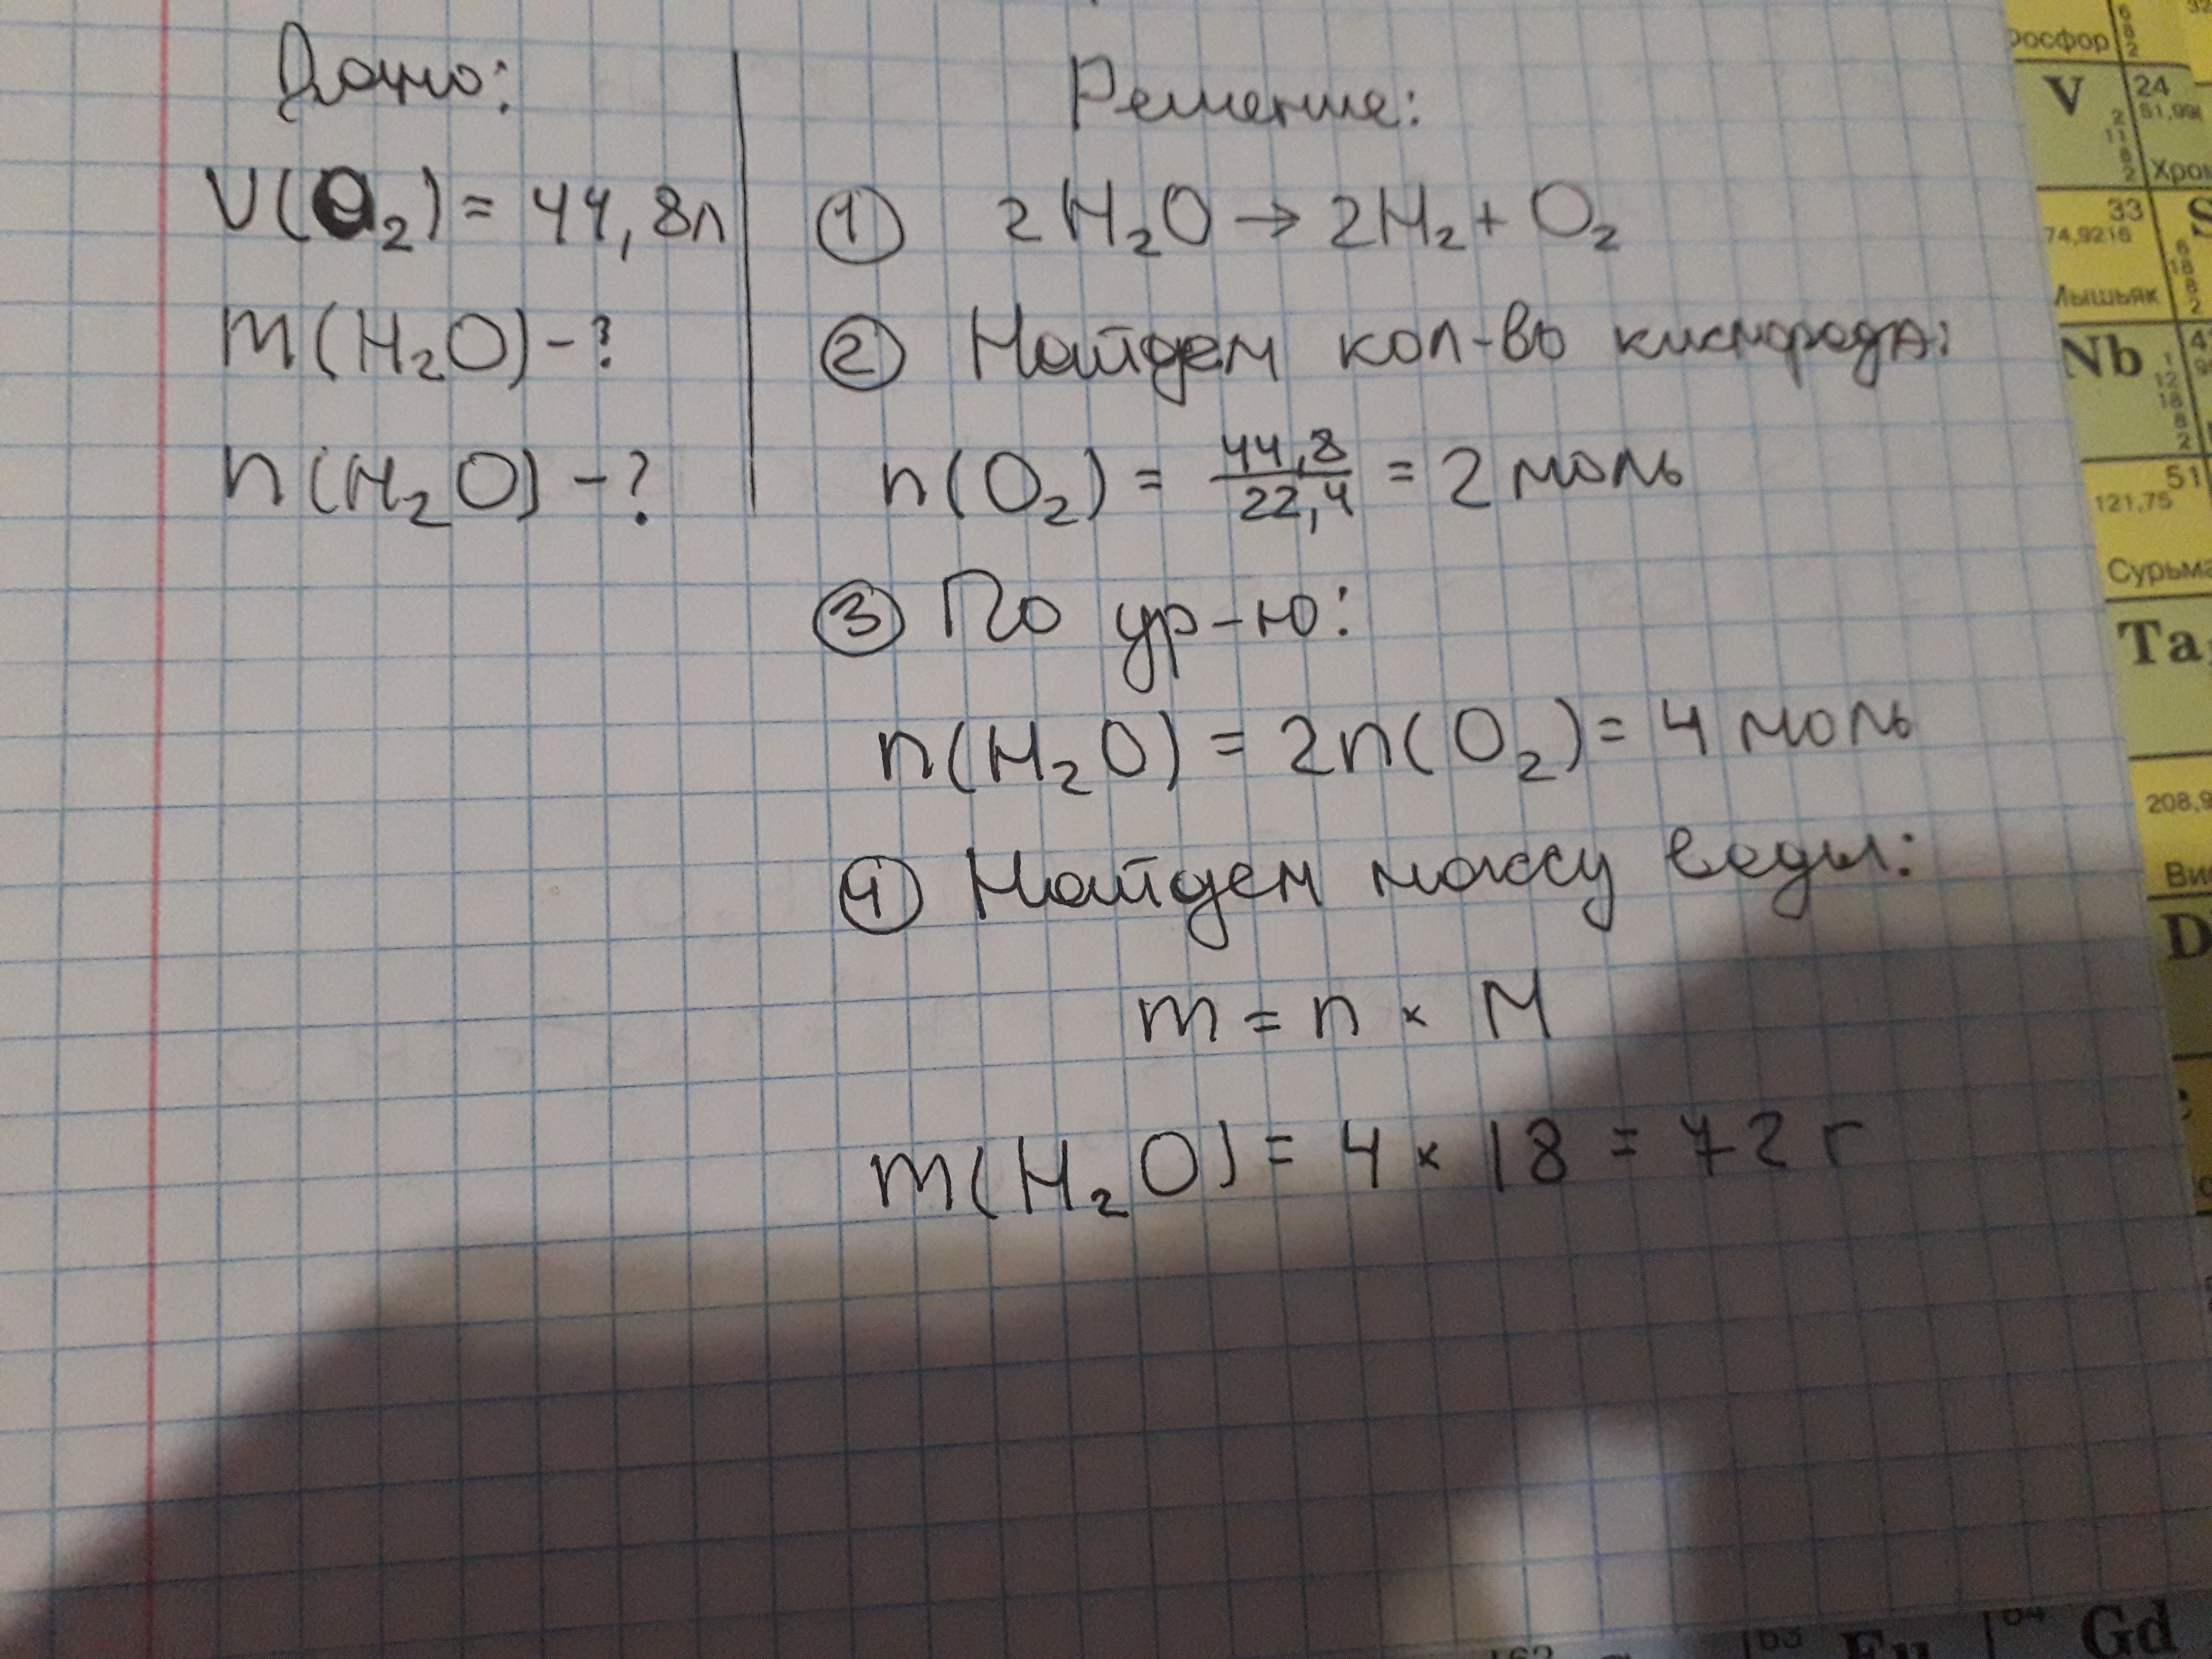 Дано:
V(O₂) = 44,8л
m(H₂O) - ?
n(H₂O) - ?
Решение:
① 2H₂O → 2H₂ + O₂
② Найдем кол-во кислорода:
n(O₂) = 44,8/22,4 = 2 моль
③ По ур-ю:
n(H₂O) = 2n(O₂) = 4 моль
④ Найдем массу воды:
m = n × M
m(H₂O) = 4 × 18 = 72 г
осфор
6
8
2
V
2
11
8
2
24
51,996
Хром
33
74,9216
Мышьяк
S
6
18
8
2
Nb
1
12
18
8
2
51
121,75
Сурьма
Ta
208,9
Ви
D
63
Eu
64
Gd